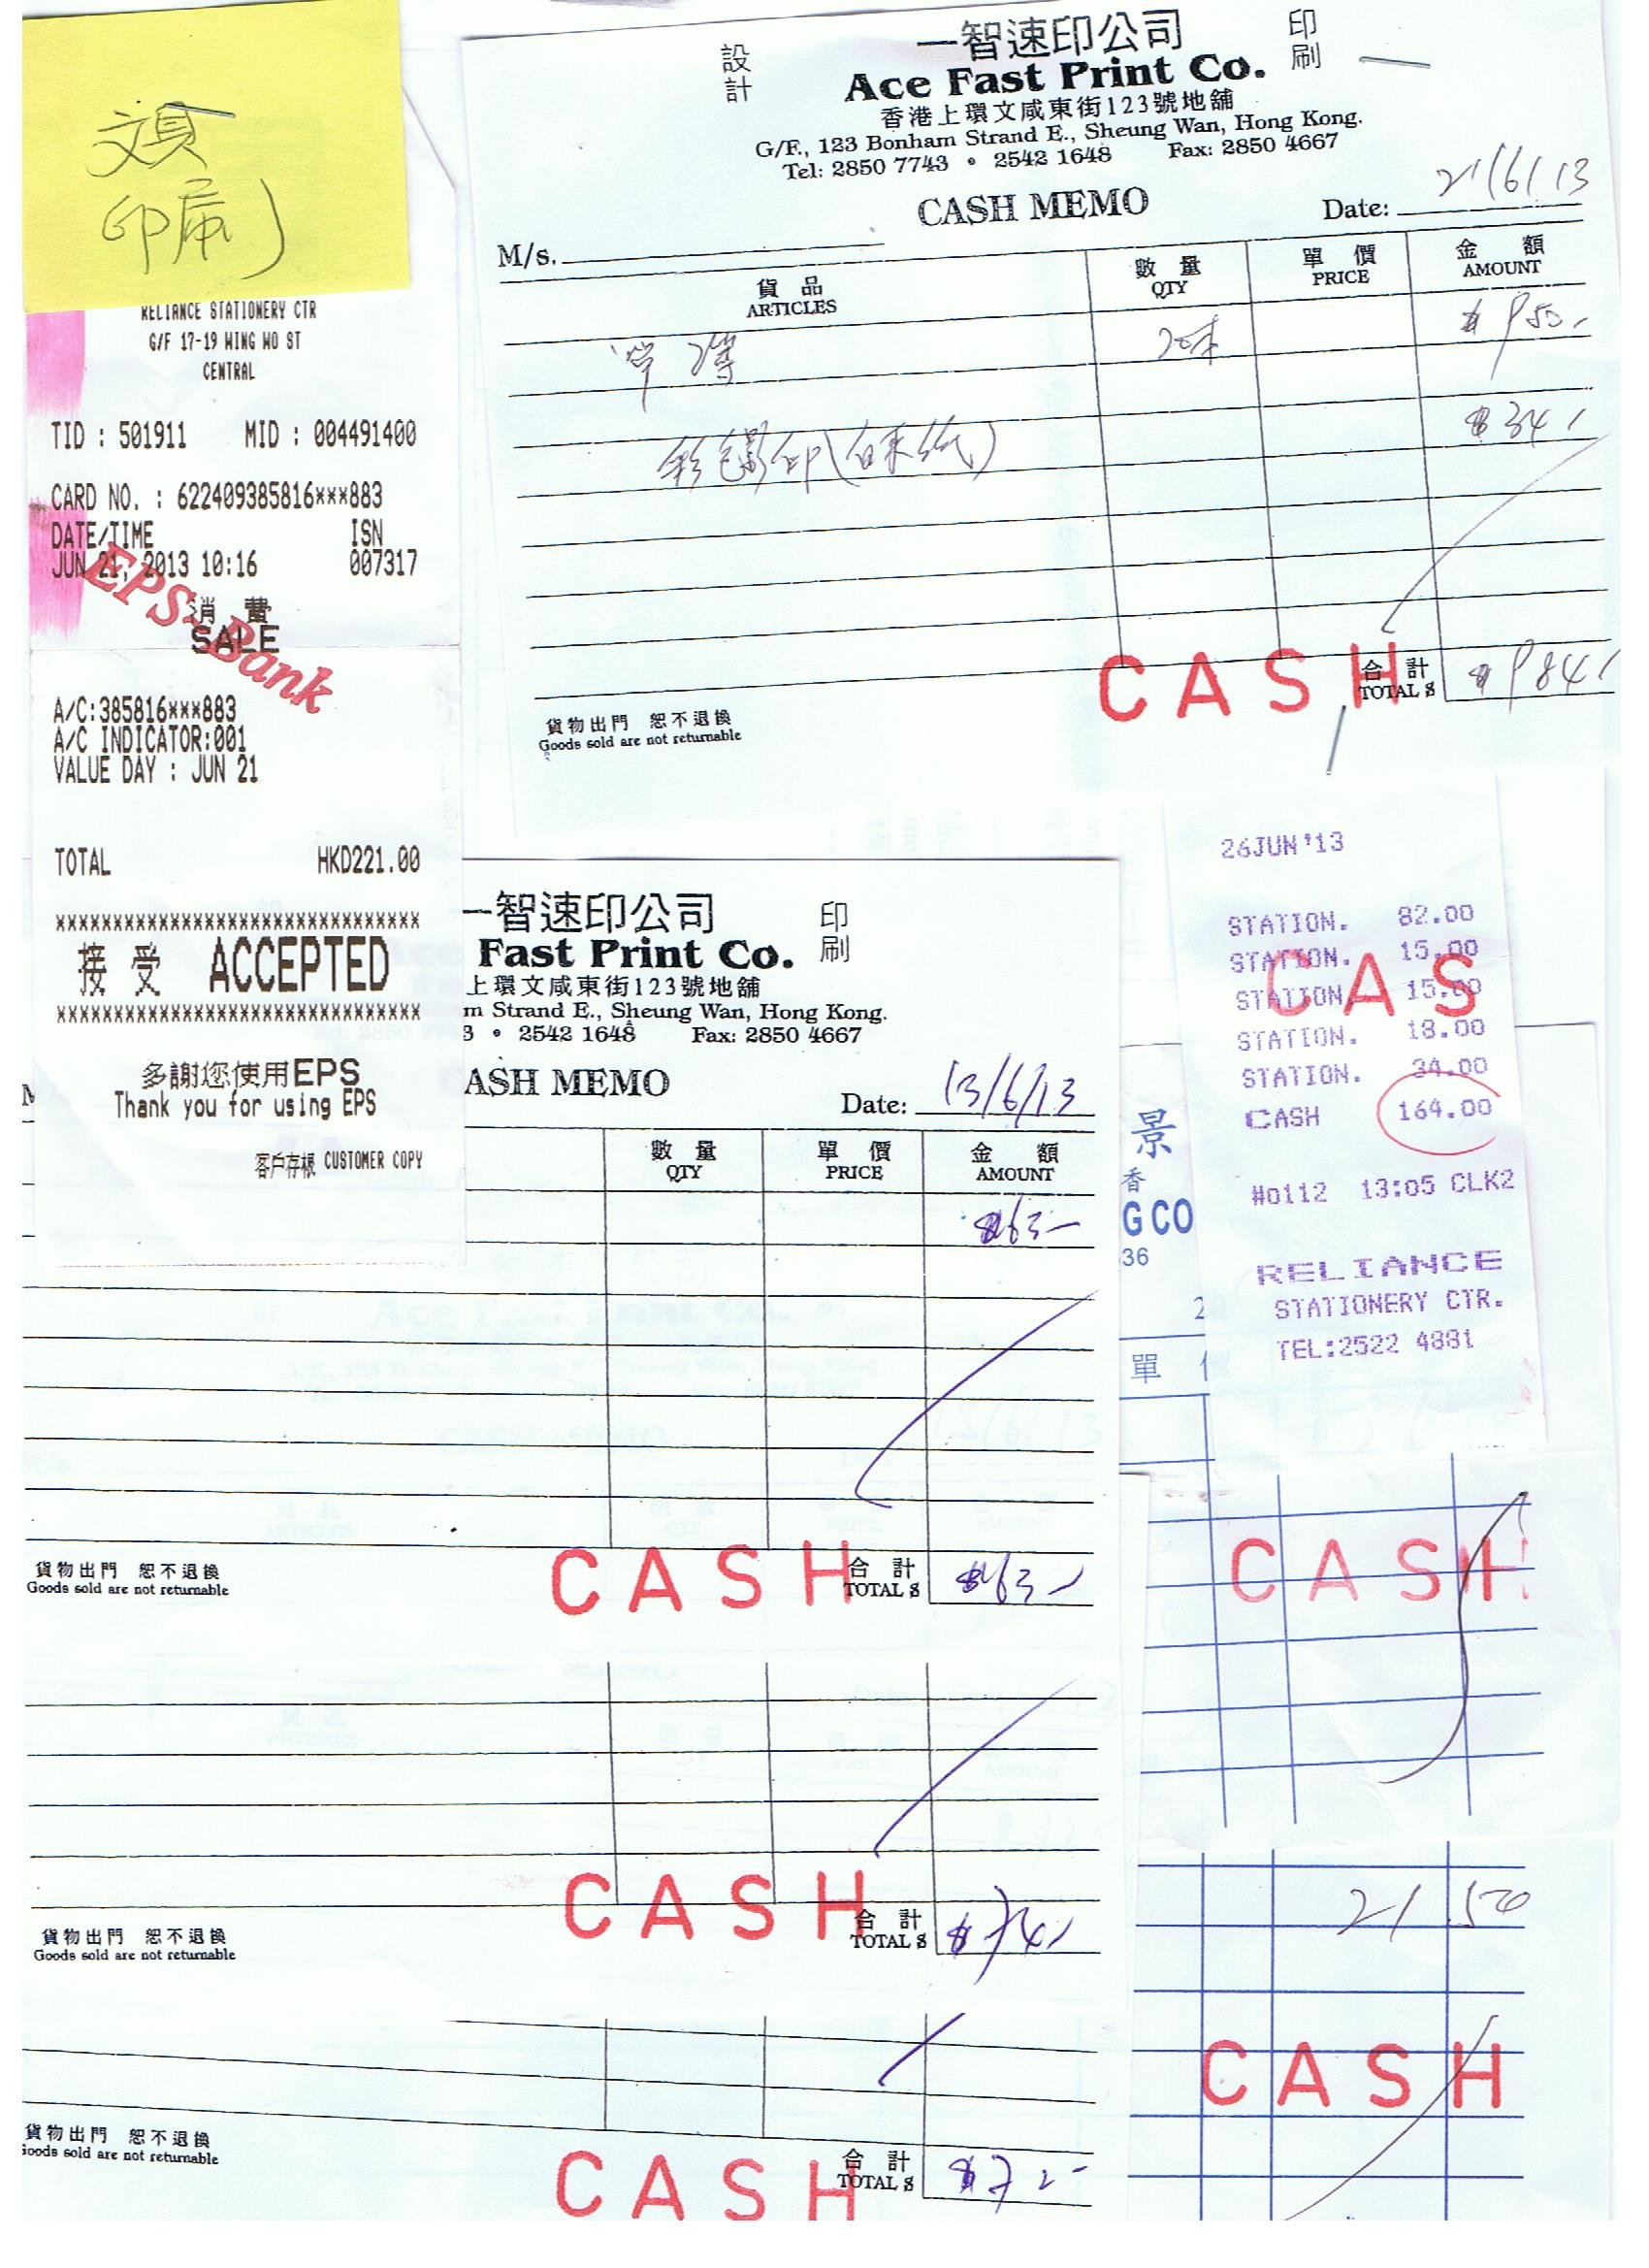 印
RELIANCE STATIONERY CTR
G/F 17-19 WING WO ST
CENTRAL
TID : 501911 MID : 004491400
CARD NO. : 622409385816***883
DATE/TIME ISN
JUN 21, 2013 10:16 007317
EPS-Bank
消 費
SALE
A/C:385816***883
A/C INDICATOR:001
VALUE DAY : JUN 21
TOTAL HKD221.00
接 受 ACCEPTED
多謝您使用EPS
Thank you for using EPS
客戶存根 CUSTOMER COPY
設計
一智速印公司
印刷
Ace Fast Print Co.
香港上環文咸東街123號地舖
G/F., 123 Bonham Strand E., Sheung Wan, Hong Kong.
Tel: 2850 7743 • 2542 1648 Fax: 2850 4667
CASH MEMO
Date: 21/6/13
M/s.
貨 品 數 量 單 價 金 額
ARTICLES QTY PRICE AMOUNT
$950
彩色影印
$34
CASH
合 計
TOTAL $ $984
貨物出門 恕不退換
Goods sold are not returnable
一智速印公司
印刷
Fast Print Co.
上環文咸東街123號地舖
m Strand E., Sheung Wan, Hong Kong.
3 • 2542 1648 Fax: 2850 4667
ASH MEMO
Date: 13/6/13
數 量 單 價 金 額
QTY PRICE AMOUNT
$63
貨物出門 恕不退換
Goods sold are not returnable
CASH
合 計
TOTAL $ $63
貨物出門 恕不退換
Goods sold are not returnable
CASH
合 計
TOTAL $ $74
貨物出門 恕不退換
Goods sold are not returnable
CASH
合 計
TOTAL $ $72
26JUN'13
STATION. 82.00
STATION. 15.00
STATION. 15.00
STATION. 18.00
STATION. 34.00
CASH 164.00
CAS
#0112 13:05 CLK2
RELIANCE
STATIONERY CTR.
TEL:2522 4881
景
香
G CO
36
2
單
CASH
21 50
CASH